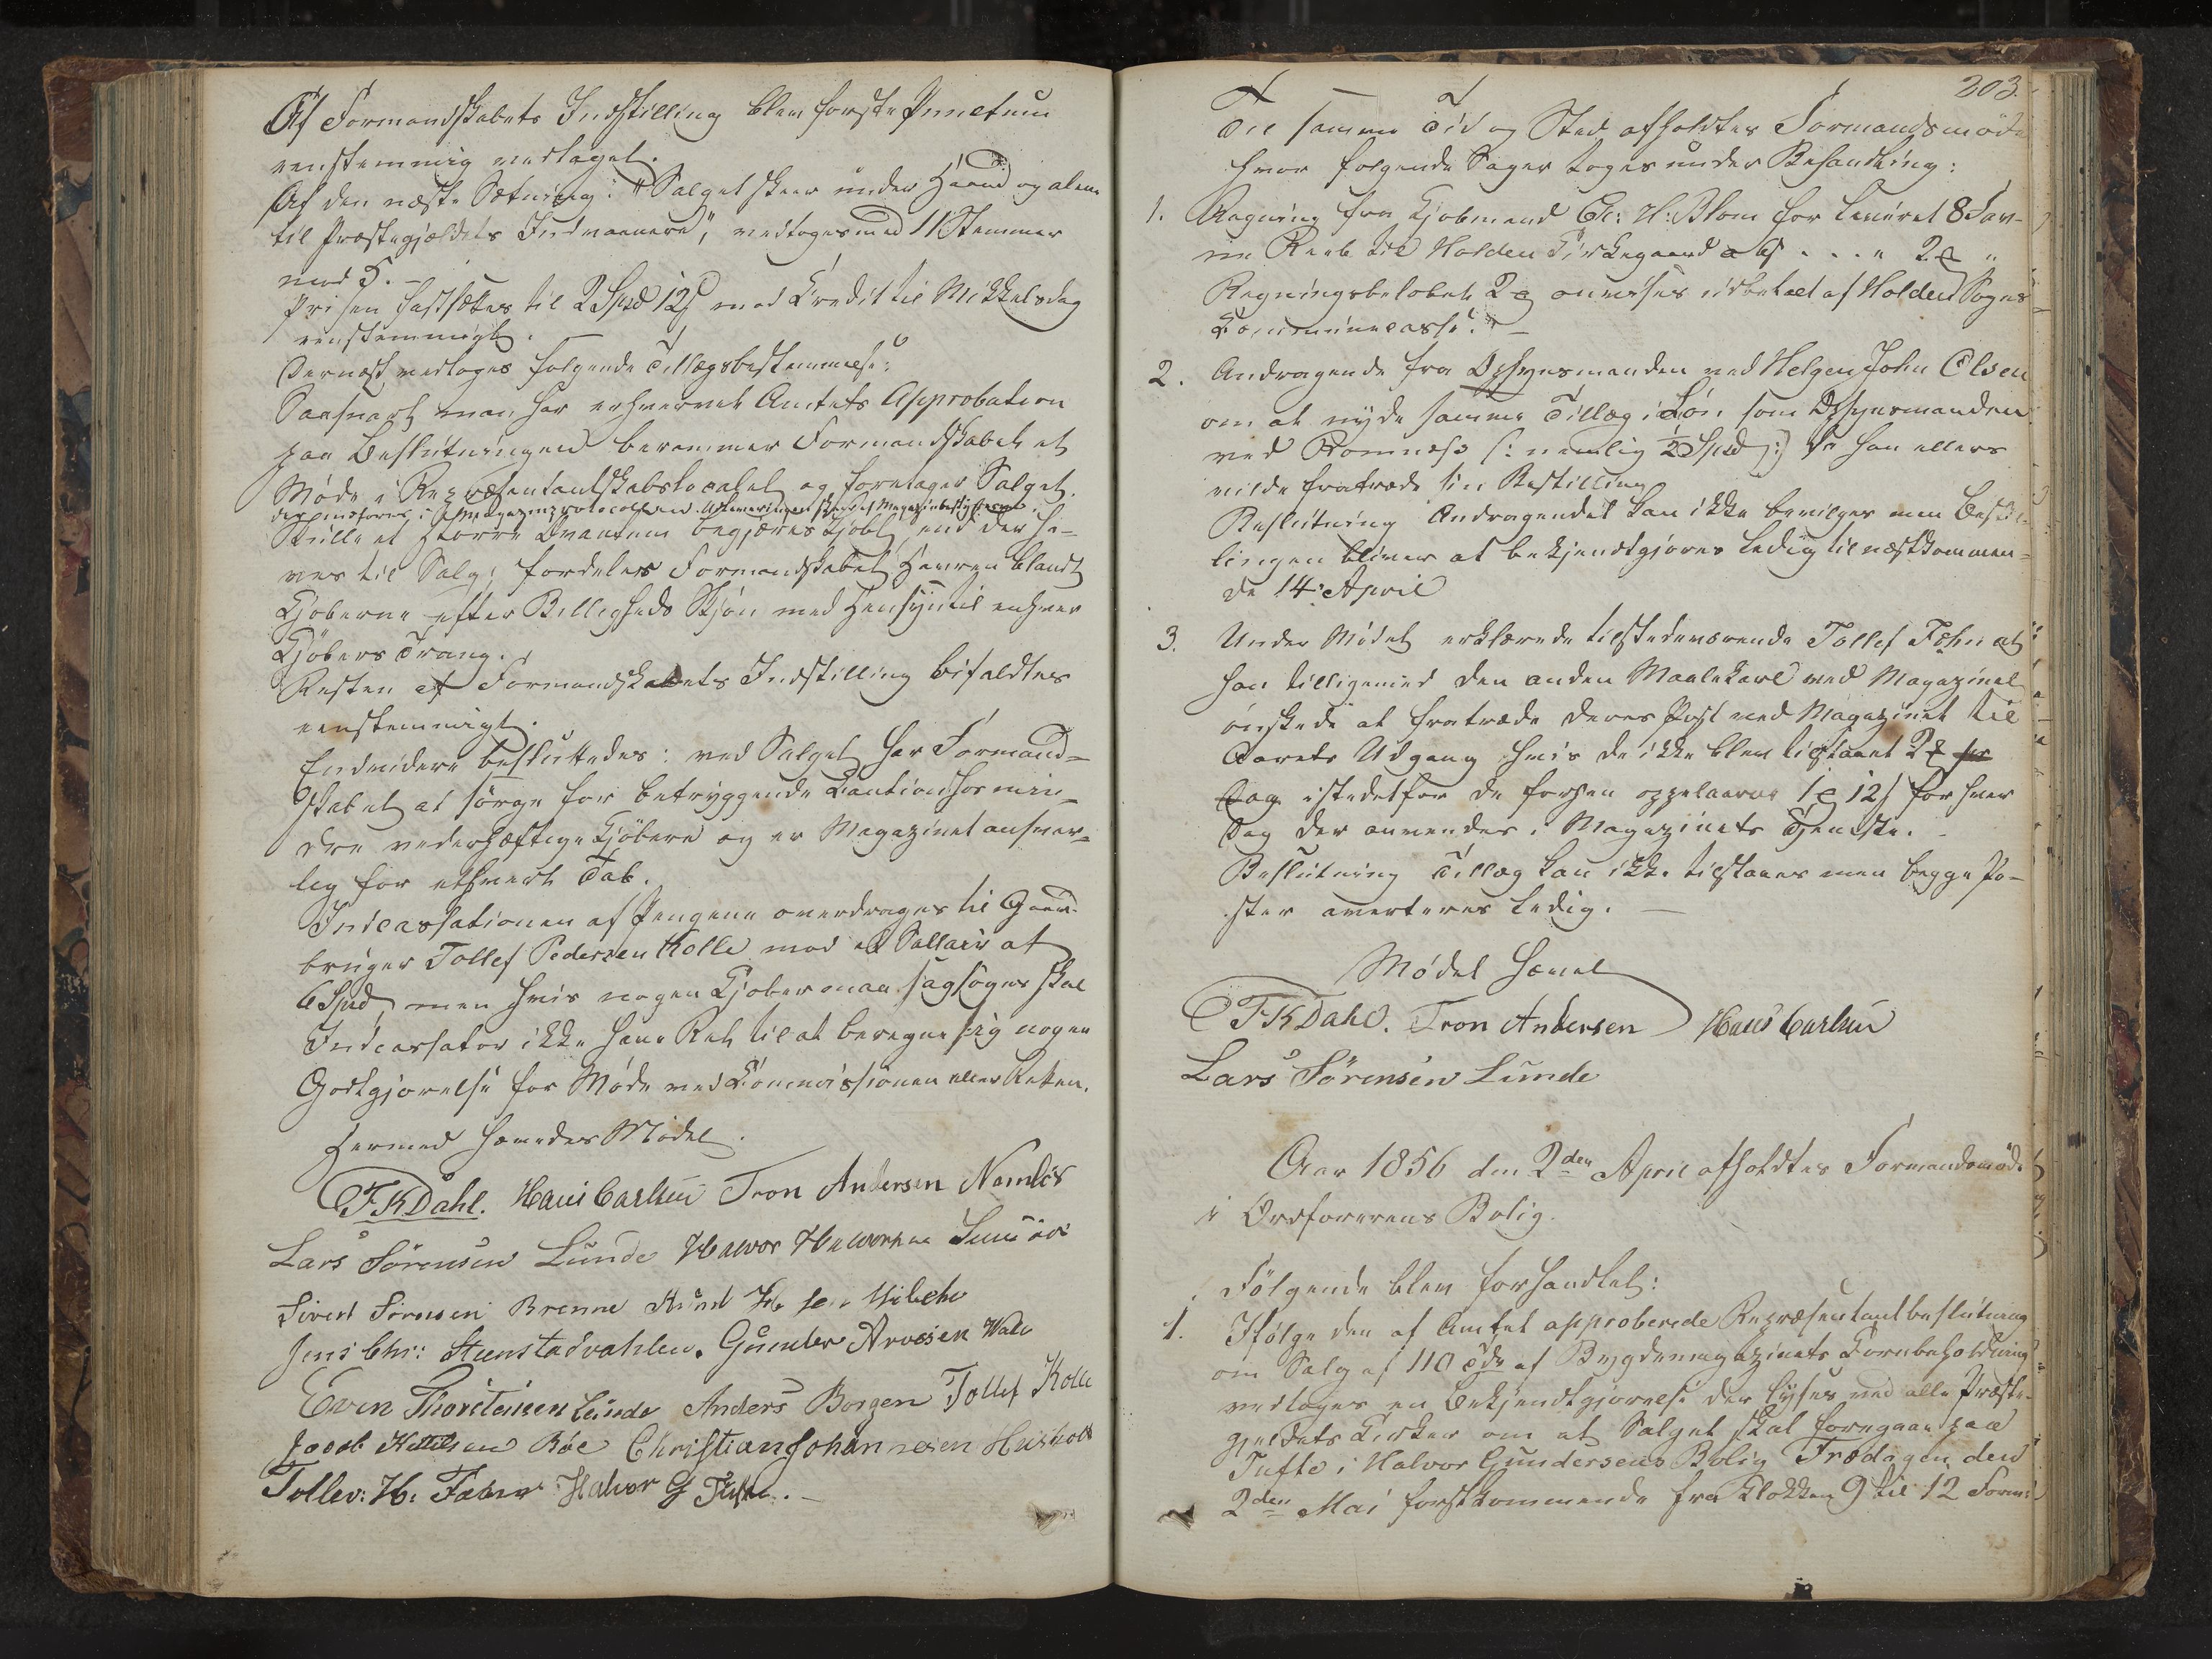 Af Formandskabets Indstilling blev første Punctum
eenstemmig vedtaget.
Af den næste Sætning: "Salget skeer under Haand og alene
til Præstegjældets Indvaanere", vedtoges med 11 Stemmer
mod 5. –
Prisen fastsættes til 2 Spd 12 s med Credit til Mikkelsdag
eenstemmigt.
Dernæst vedtoges følgende Tillægsbestemmelse:
Saasnart man har erhvervet Amtets Approbation
paa Beslutningen berammer Formandskabet et
Møde i Repræsentantskabslocalet og foretager Salget.
der indføres i Magazinprotocollen. Udleveringen skeer af Magazinbestyrelsen
Skulle et større Qvantum begjæres kjøbt, end der ha-
ves til Salg, fordeler Formandskabet Havren blandt
Kjøberne efter Billigheds Skjøn med Hensyn til enhver
Kjøbers Trang.
Resten af Formandskabets Indstilling bifaldtes
eenstemmigt.
Endvidere besluttedes: ved Salget har Formand-
skabet at sørge for betryggende Caution hos min-
dre vederhæftige Kjøbere og er Magazinet ansvar-
lig for ethvert Tab.
Indcassationen af Pengene overdrages til Gaard-
bruger Tollef Pedersen Kolle mod et Sallair af
6 Spd, men hvis nogen Kjøber maa sagsøges skal
Indcassator ikke have Ret til at beregne sig nogen
Godtgjørelse for Møde ved Commissionen eller Retten.
Hermed hævedes Mødet.
TKDahl. Hans Carlsen Tron Andersen Namløs
Lars Sørensen Lunde Halvor Halvorsen
Sivert Sørensen Brenne
Jens Chr: Steenstadvahlen. Gunder Arvesen Wale
Even Thorsteinsen Lunde Anders Borgen Tollef Kolle
Jacob Kittelsen Røe Christian Johannesen Huset
Tollev: H: Fæhn Halvor G Tufte. –
203.
Til samme Tid og Sted afholdtes Formandsmøde
hvor følgende Sager toges under Behandling:
1. Regning fra Kjøbmand Chr: H: Blom for leveret 8 Fav-
ne Reeb til Holden Kirkegaard . . . " 2 "
Regningsbeløbet 2 anvises udbetalt af Holden Sogns
Communecasse. –
2. Andragende fra Opsynsmanden ved Helgen John Olsen
om at nyde samme Tillæg i Løn som Opsynsmanden
ved Romnæs (: nemlig 2 Spd :) da han ellers
vilde fratræde sin Bestilling
Beslutning Andragendet kan ikke bevilges men Bestil-
lingen bliver at bekjendtgjøres ledig til næstkommen-
de 14 April
3. Under Mødet erklærede tilstedeværende Tollef Fæhn at
han tilligemed den anden Maalekarl ved Magazinet
ønskede at fratræde deres Post ved Magazinet til
Aarets Udgang hvis de ikke blev tilstaaet 2 for
Dag istedetfor de forhen oppebaarne 1 12 s for hver
Dag der anvendes i Magazinets Tjeneste.
Beslutning Tillæg kan ikke tilstaaes men begge Po-
ster averteres ledig. –
Mødet hævet
TKDahl. Tron Andersen Hans Carlsen
Lars Sørensen Lunde
Aar 1856 den 2den April afholdtes Formandsmøde
i Ordførerens Bolig.
Følgende blev forhandlet:
1. Ifølge den af Amtet approberede Repræsentantbeslutning
om Salg af 110 Tdr af Bygdemagazinets Kornbeholdning
vedtoges en Bekjendtgjørelse der lyses ved alle Præste-
gjeldets Kirker om at Salget skal foregaae paa
Tufte i Halvor Gundersens Bolig Fredagen den
2den Mai førstkommende fra Klokken 9 til 12 Form: